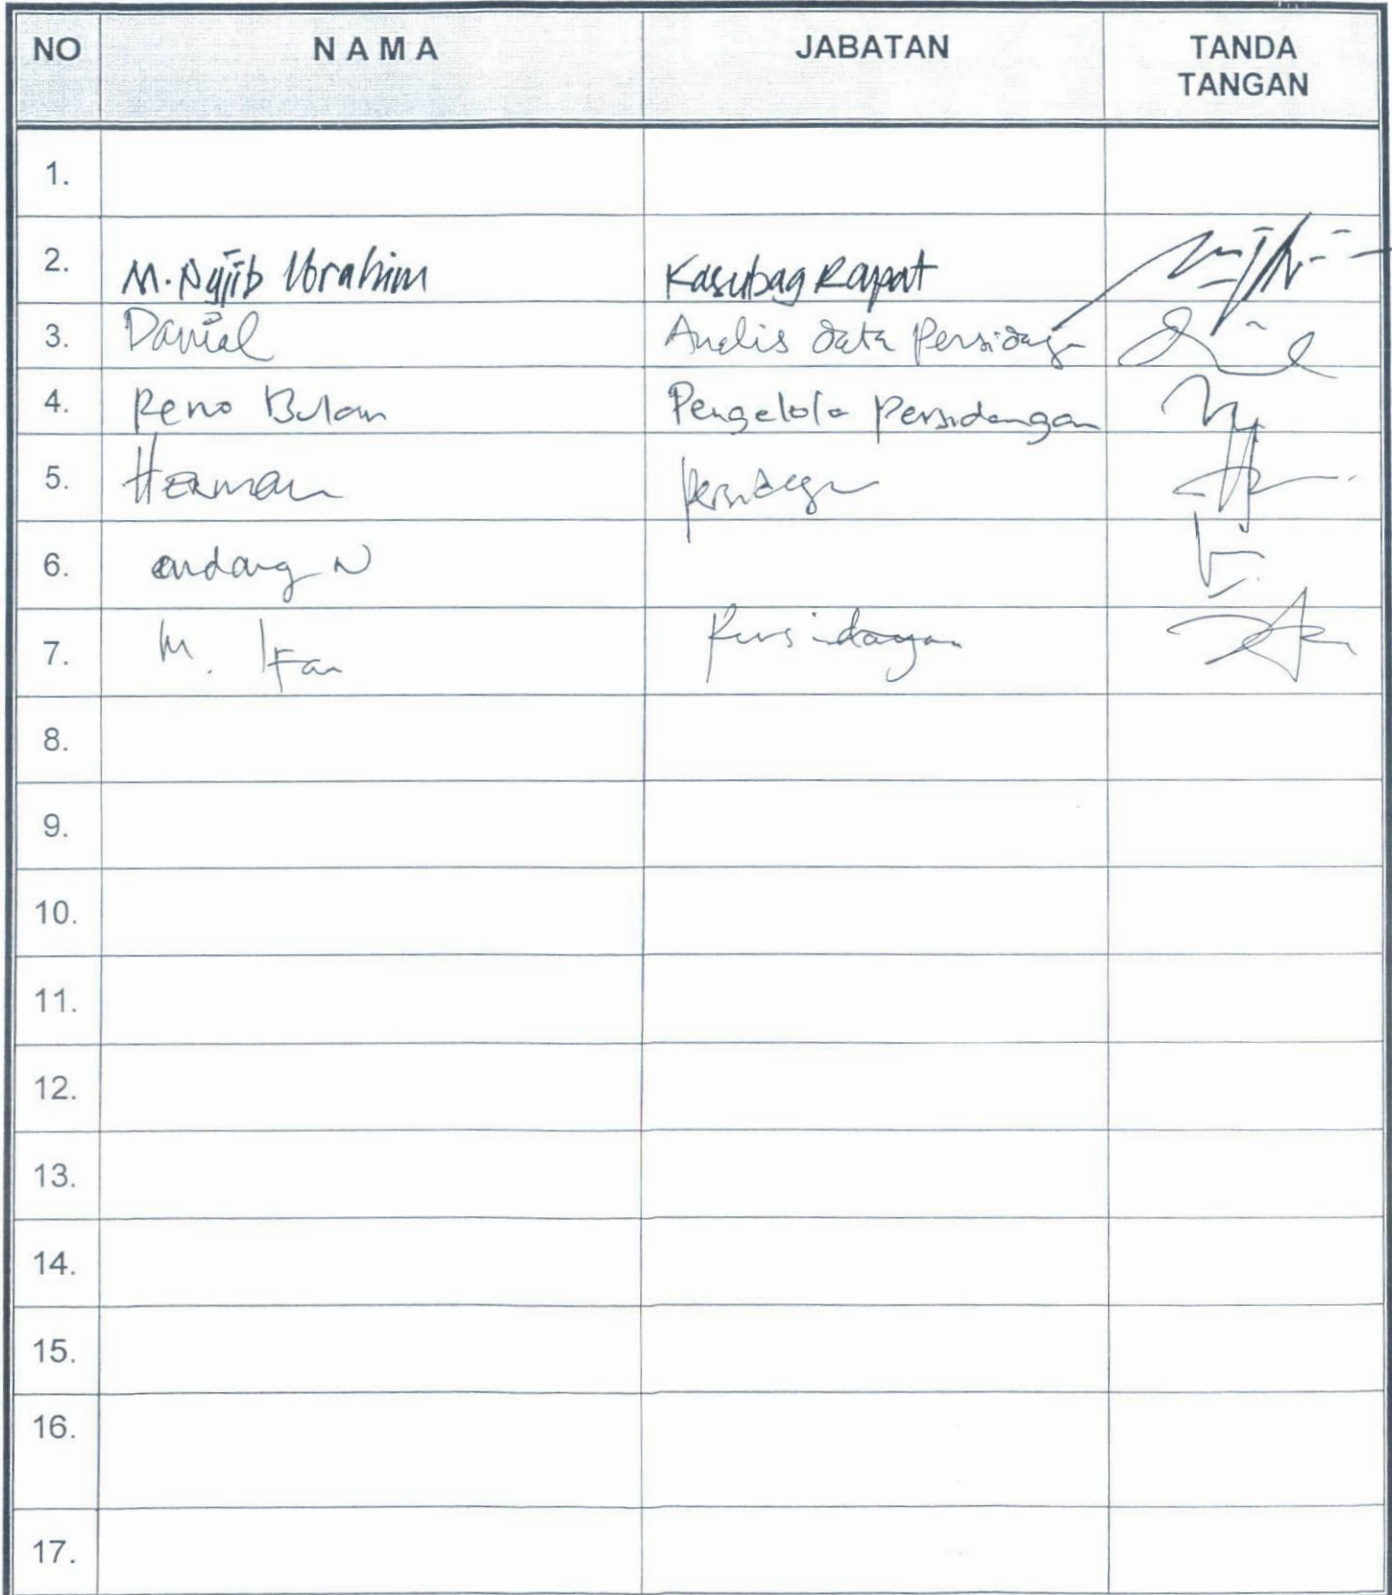 NO NAMA JABATAN TANDA
TANGAN
1.
2. M. Najib Ibrahim Kasubag Rapat
3. Danial Analis data Persidangan
4. Reno Bulan Pengelola Persidangan
5. Herman Persidangan
6. endang N
7. M. Irfan Persidangan
8.
9.
10.
11.
12.
13.
14.
15.
16.
17.